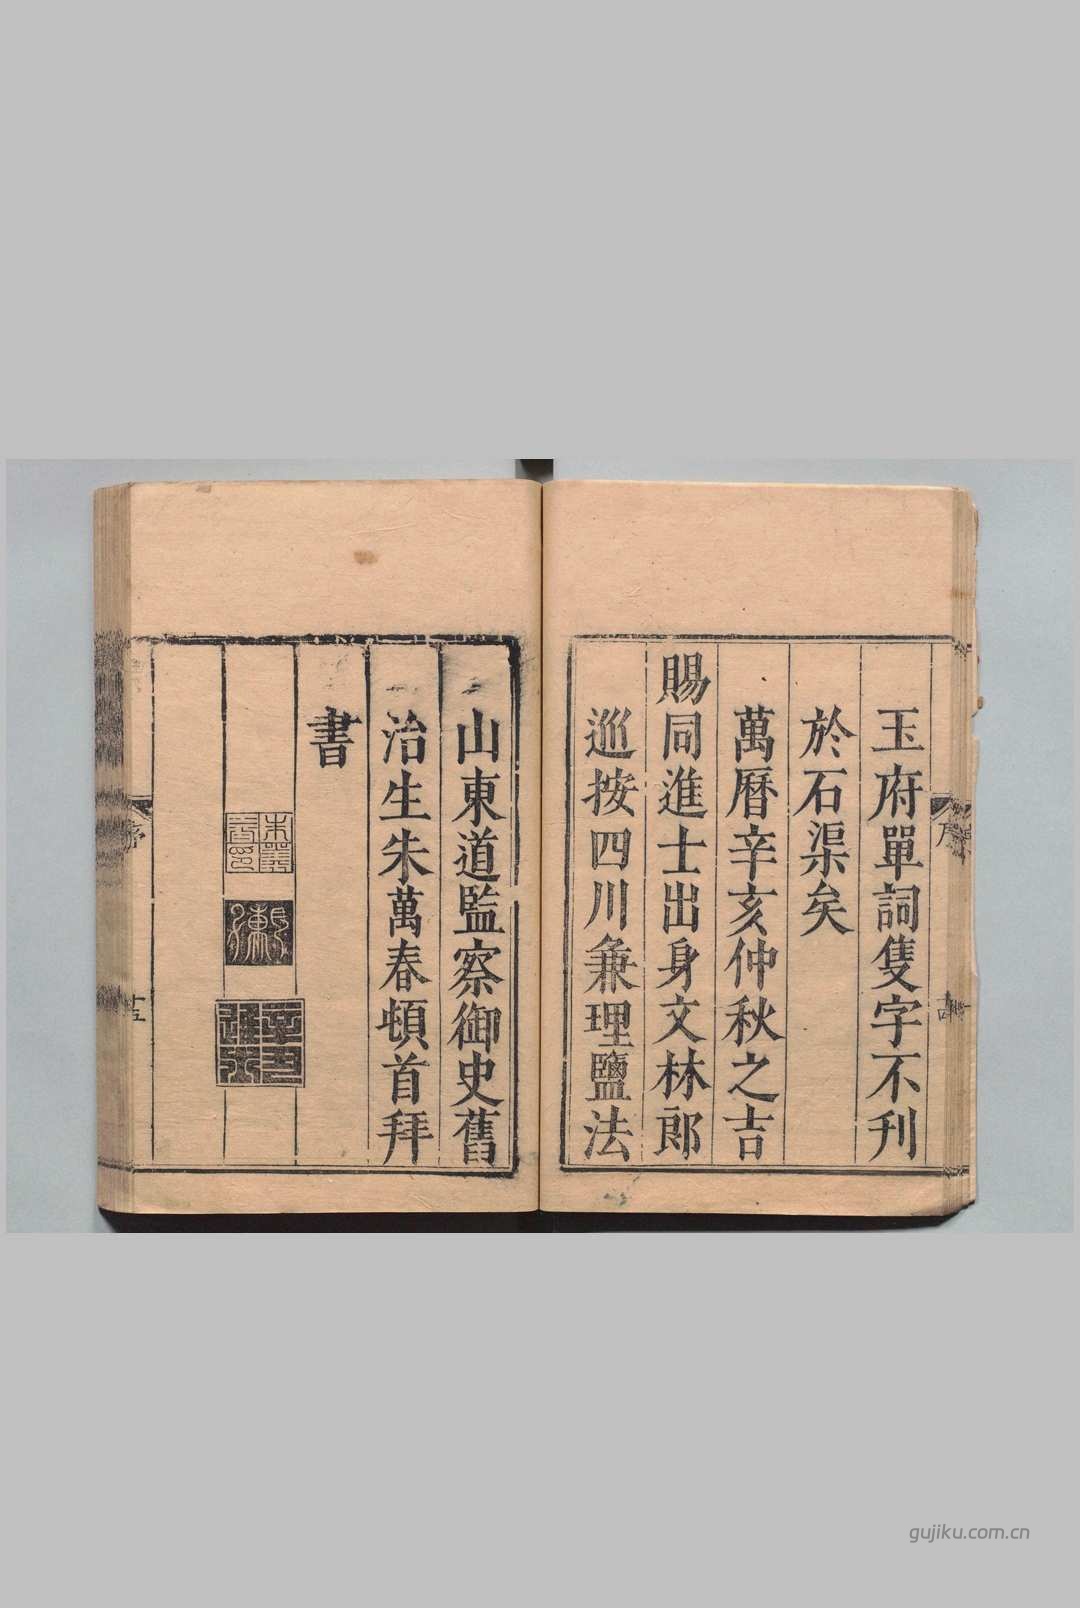 玉府單詞隻字不刋
於石渠矣
萬曆辛亥仲秋之吉
賜同進士出身文林郎
巡按四川兼理鹽法
山東道監察御史舊
治生朱萬春頓首拜
書
序
十五
gujiku.com.cn